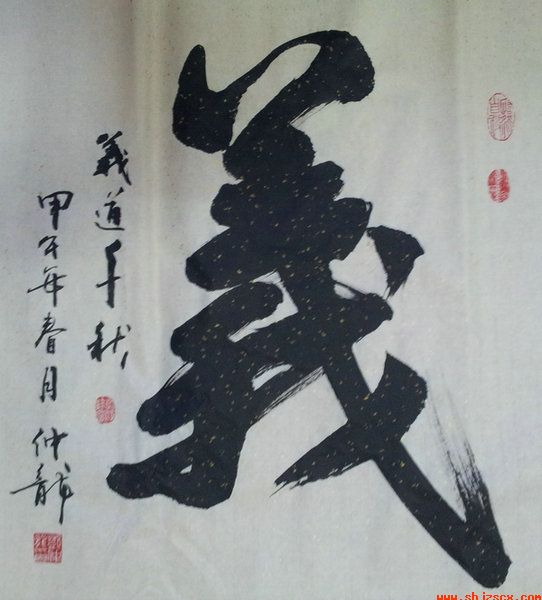 義
義道千秋
甲午年春月 仲龍
www.shizscx.com